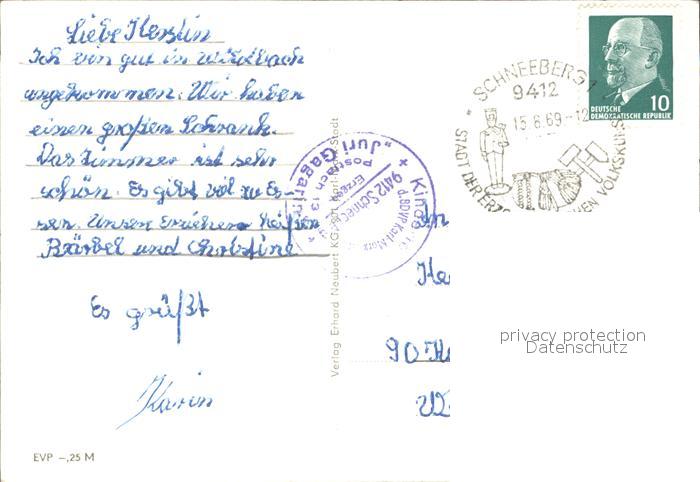 Liebe Kerstin
Ich bin gut in
angekommen. Wir haben
einen großen Schrank.
Das Zimmer ist sehr
schön. Es gibt viel zu Es-
sen. Unsere Erzieher heißen
Bärbel und Christine
Es grüßt
Karin
EVP –,25 M
Verlag Erhard Neubert KG Karl-Marx-Stadt
"Juri Gagarin"
Postfach 13
9412 Schnee
d. BDVP Karl-Marx
SCHNEEBERG 1
9412
15.6.69-12
STADT DER ERZG
CHEN VOLKSKUNS
DEUTSCHE
DEMOKRATISCHE REPUBLIK
10
An
90
privacy protection
Datenschutz